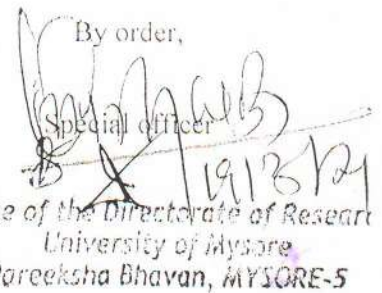 By order,
Special officer
e of the Directorate of Resear
University of Mysore
Pareeksha Bhavan, MYSORE-5